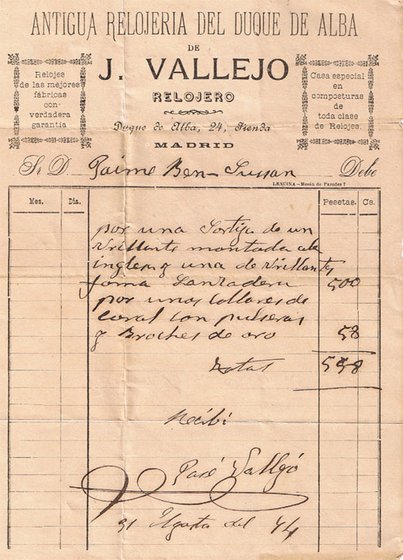 ANTIGUA RELOJERIA DEL DUQUE DE ALBA
DE
J. VALLEJO
RELOJERO
Duque de Alba, 24, tienda
MADRID
Relojes
de las mejores
fábricas
con
verdadera
garantía
Casa especial
en
composturas
de
toda clase
de Relojes.
Sr. D. Jaime Ben-Sussan Debe
LENCINA—Mesón de Paredes 7
Mes. Día. Pesetas. Cs.
por una Sortija de un
brillante montada a la
inglesa y una de brillantes
forma Lanzadera 500
por unos collares de
coral con pulseras
y Broches de oro 58
Total 558
Recibí
José Vallejo
31 Agosto del 44